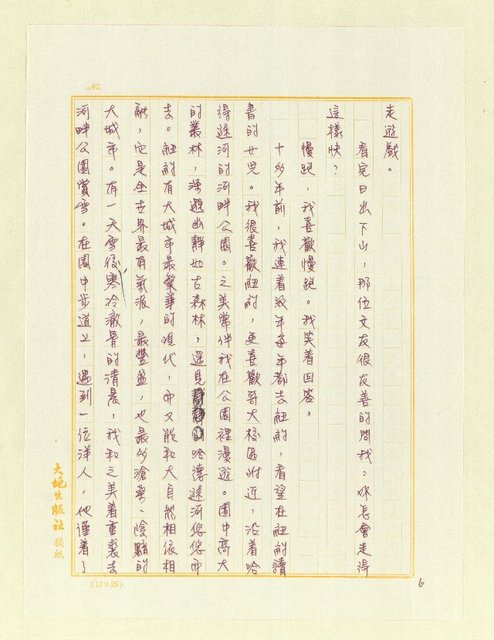 走遊戲。
看完日出下山，那位文友很友善的問我：妳怎會走得
這樣快？
慢跑，我喜歡慢跑。我笑着回答。
十多年前，我連着數年每年都去紐約，看望在紐約讀
書的女兒。我很喜歡紐約，更喜歡哥大校區附近，沿着哈
得遜河的河畔公園。之美常伴我在公園裡漫遊。園中高大
的叢林，濃蔭幽靜如古森林，遠見哈德遜河悠悠而
去。紐約有大城市最繁華的現代，而又能和大自然相依相
融，它是全世界最有氣派、最豐盈，也最滄桑、陰黯的
大城市。有一天雪後寒冷澈骨的清晨，我和之美着重裘去
河畔公園賞雪。在園中步道上，遇到一位洋人，他僅着了
No.
大地出版社稿紙
(12×25)
6